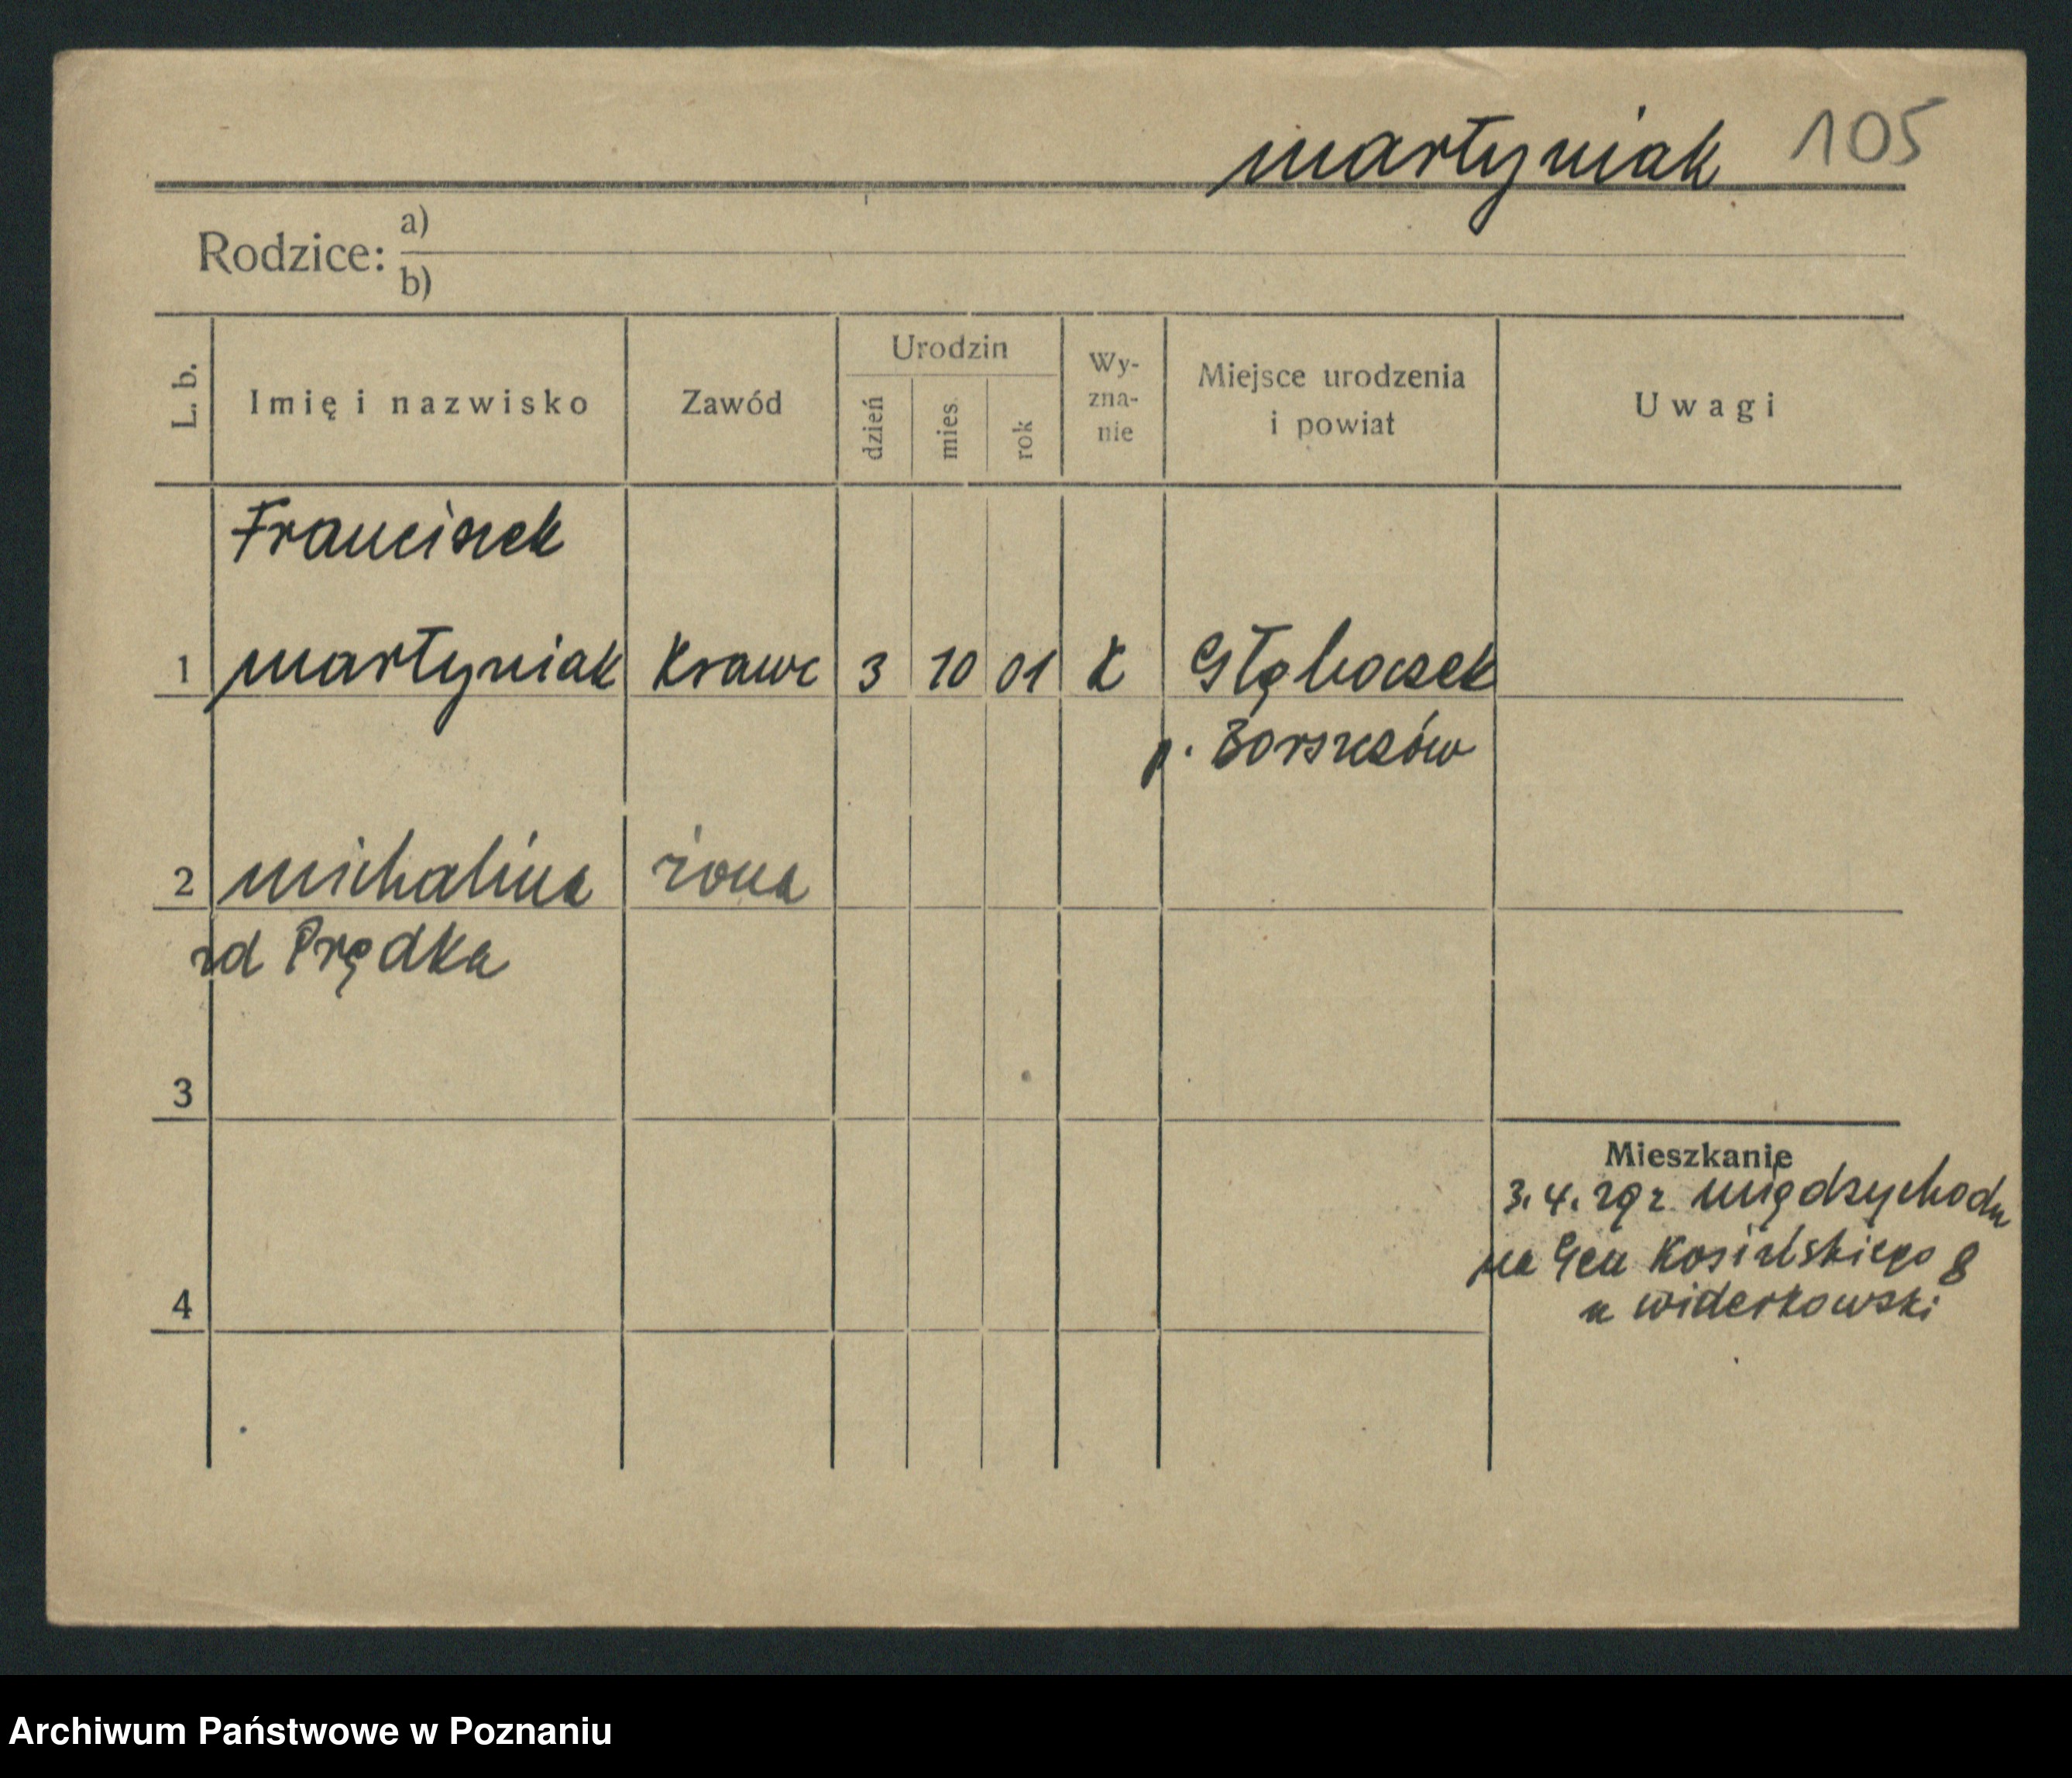 Martyniak 105
Rodzice: a)
b)
L. b.
Imię i nazwisko
Zawód
Urodzin
dzień
mies.
rok
Wy-
zna-
nie
Miejsce urodzenia
i powiat
Uwagi
Franciszek
1 Martyniak Krawc 3 10 01 K Głęboczek
p. Borszczów
2 Michalina żona
zd Prędka
3
4
Mieszkanie
3. 4. 29 z Międzychodu
na Gen Kosińskiego 8
u Widerkowski
Archiwum Państwowe w Poznaniu